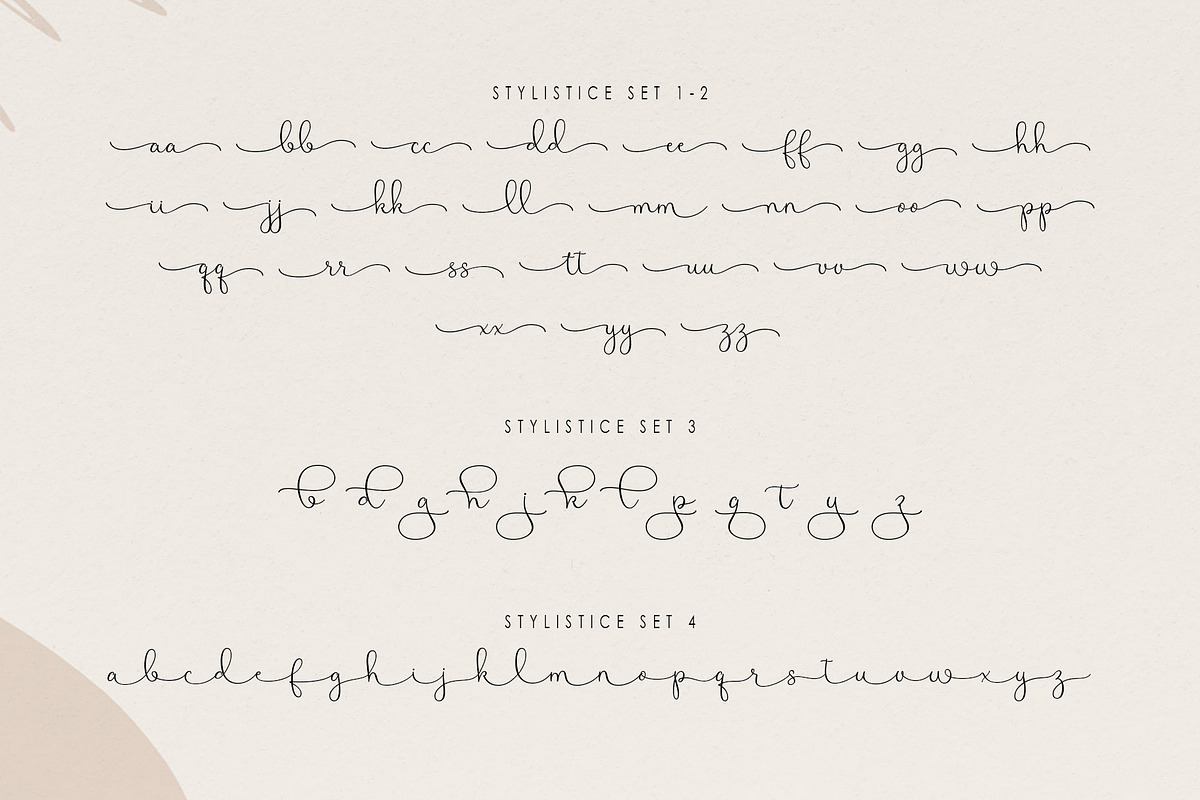 STYLISTICE SET 1-2
aa bb cc dd ee ff gg hh
ii jj kk ll mm nn oo pp
qq rr ss tt uu vv ww
xx yy zz
STYLISTICE SET 3
b d g h j k l p q t y z
STYLISTICE SET 4
abcdefghijklmnopqrstuvwxyz